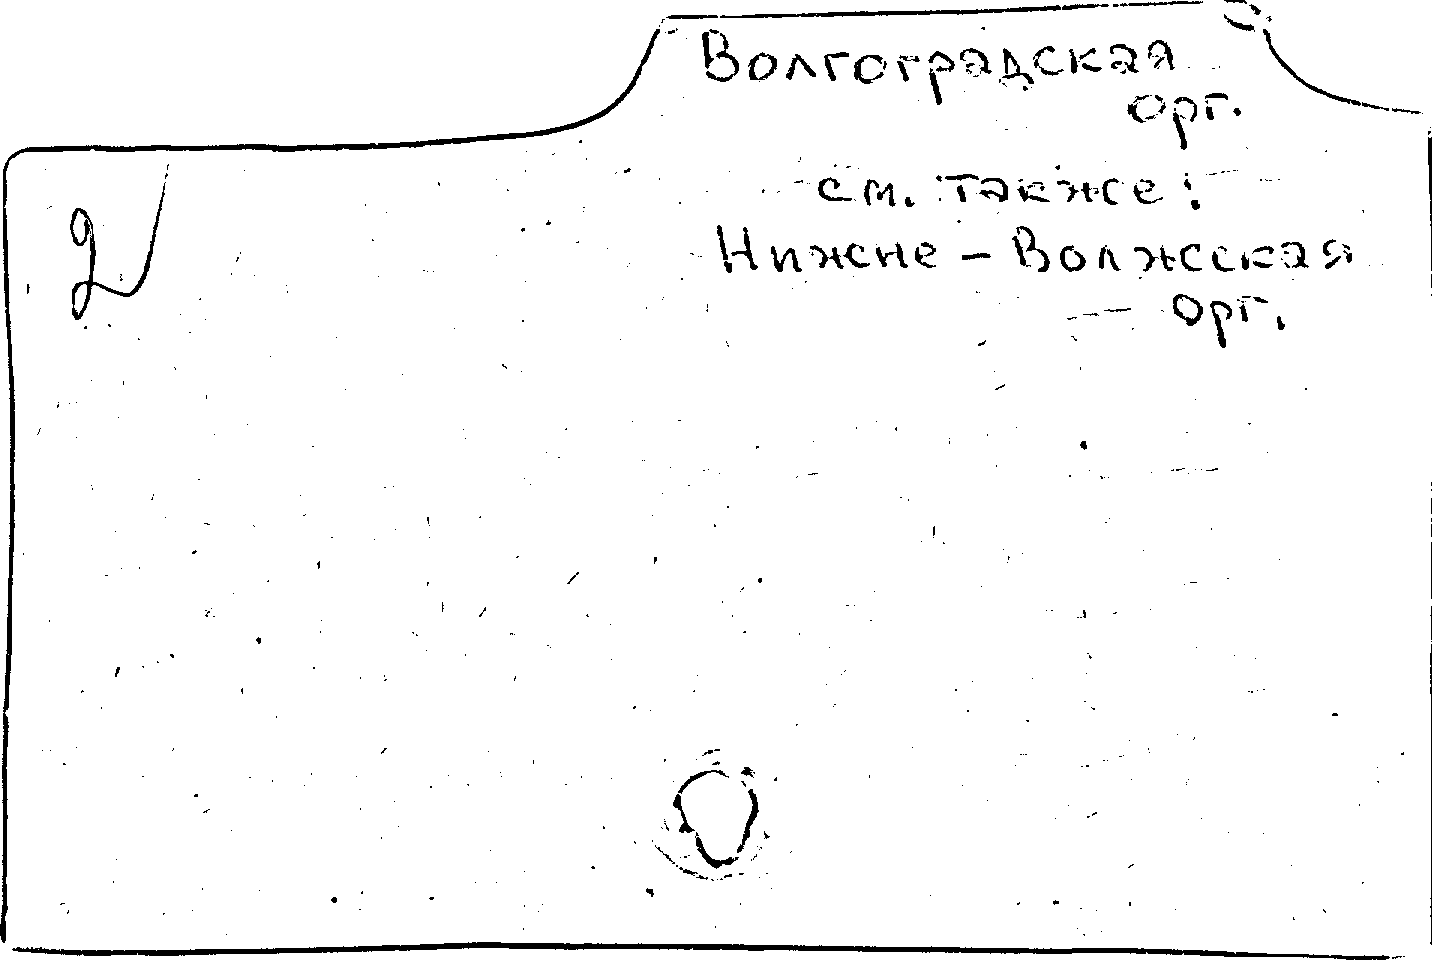 Волгоградская
орг.
см. также:
Нижне-Волжская
орг.